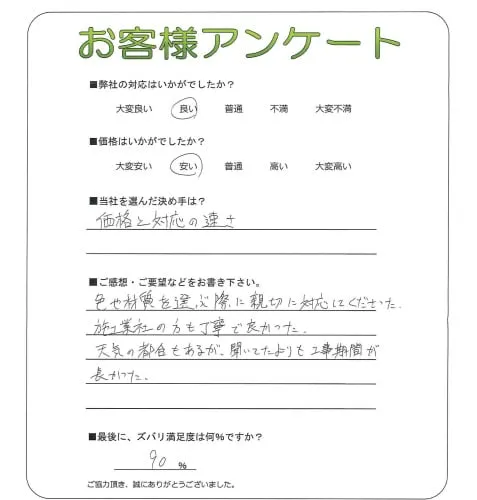 お客様アンケート
■弊社の対応はいかがでしたか？
大変良い 良い 普通 不満 大変不満
■価格はいかがでしたか？
大変安い 安い 普通 高い 大変高い
■当社を選んだ決め手は？
価格と対応の速さ
■ご感想・ご要望などをお書き下さい。
色や材質を選ぶ際に親切に対応してくださった。
施工業社の方も丁寧で良かった。
天気の都合もあるが、聞いてたよりも工事期間が
長かった。
■最後に、ズバリ満足度は何％ですか？
90 ％
ご協力頂き、誠にありがとうございました。